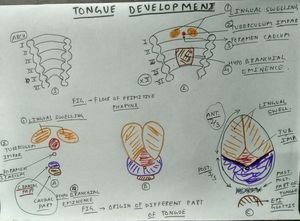 TONGUE DEVELOPMENT
ARCH
I
II
III
IV
VI
①
I
II
III
IV
②
① LINGUAL SWELLING
② TUBERCULUM IMPAR
③ FORAMEN CAECUM
④ HYPO BRANCHIAL
EMINENCE.
FIG - FLOOR OF PRIMITIVE
PHARYNX
① LINGUAL SWELLING
② TUBERCULUM
IMPAR
CRANIAL
PART
CAUDAL
PART
BRANCHIAL
EMINENCE
A
B
C
ANT.
2/3
POST.
1/3
LINGUAL
SWELL.
TUB. IMP.
POST. PART OF TONGUE
EPIGLOTTIS
FIG - ORIGIN OF DIFFERENT PART
OF TONGUE